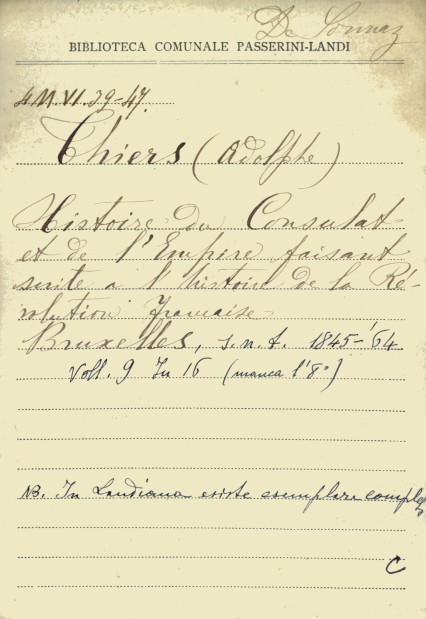 De Sonnaz
BIBLIOTECA COMUNALE PASSERINI-LANDI
4 N. VI. 39-47.
Thiers (Adolphe)
Histoire du Consulat
et de l'Empire faisant
suite a l'histoire de la Ré-
volution française
Bruxelles, s.n.t. 1845-'64
Voll. 9 In 16 (manca l'8°)
NB. In Landiana esiste esemplare complet
C